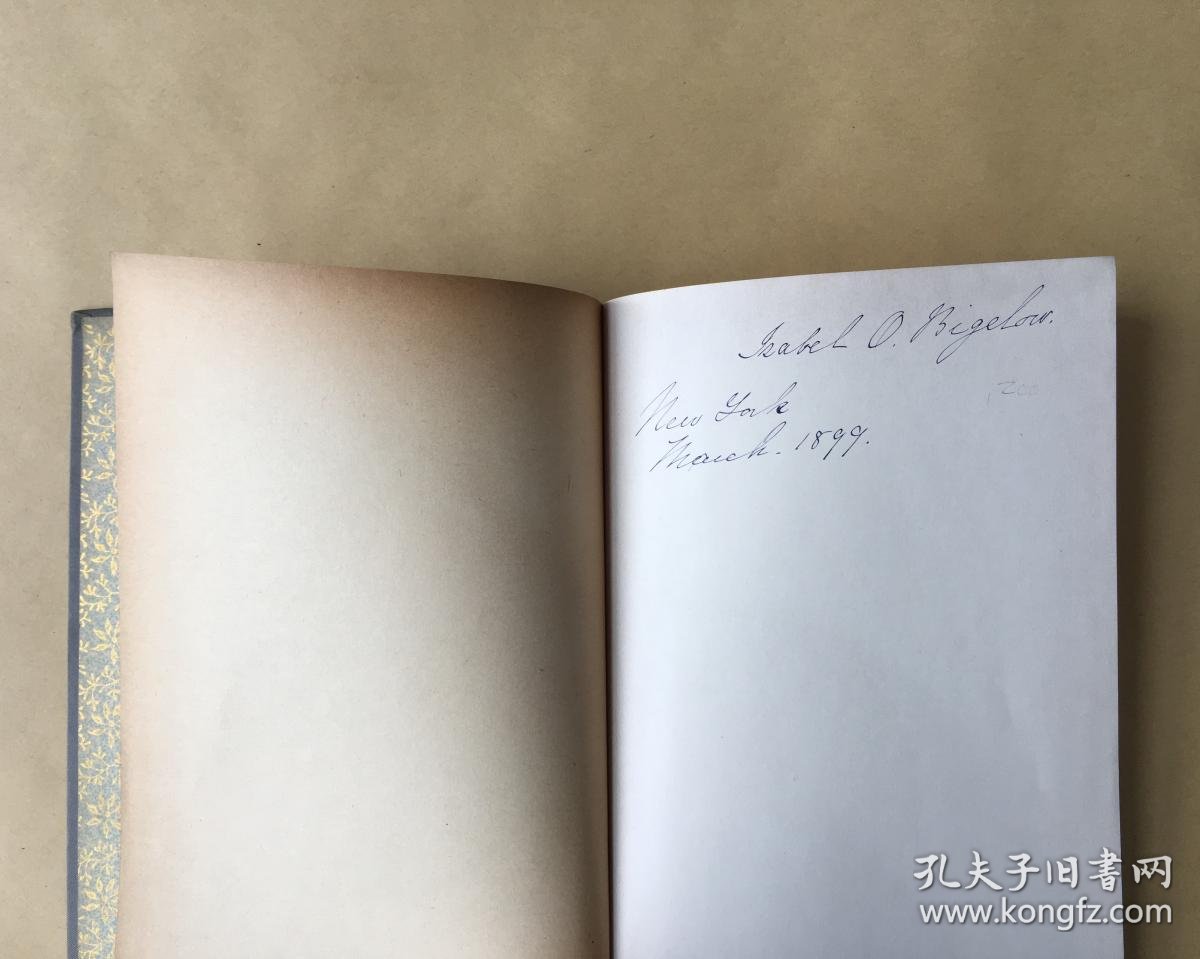 Isabel O. Bigelow.
New York
March. 1899.
孔夫子旧書网
www.kongfz.com